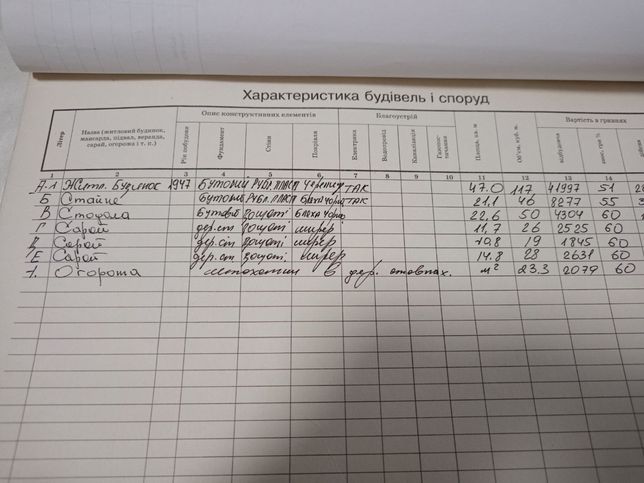 Характеристика будівель і споруд
Літер Назва (житловий будинок, мансарда, підвал, веранда, сарай, огорожа і т. п.) Рік побудови Опис конструктивних елементів Фундамент Стіни Покрівля Благоустрій Електрика Водопровід Каналізація Газопостачання Площа, кв. м Об'єм, куб. м. Вартість в гривнях відбудовна знос, грн %
1 2 3 4 5 6 7 8 9 10 11 12 13 14
А-1 Житл. будинок 1947 Бутовий рубл. ТАК 47.0 117 41997 51
Б Стайня Бутовий рубл. ТАК 21,1 46 8277 55
В Стодола Бутовий дощаті бляха 22,6 50 4304 60
Г Сарай дер. ст дощаті шифер 11,7 26 2525 60
Сарай дер. ст дощаті шифер 10,8 19 1845 60
Е Сарай дер. ст дощаті шифер 14.8 28 2631 60
1. Огорожа в дер. стовпах. м² 23.3 2079 60